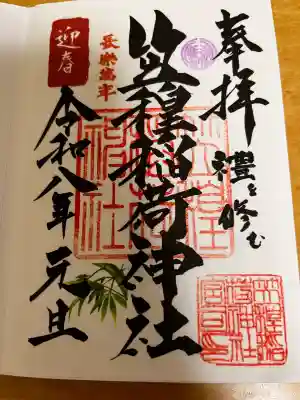 奉拝
禮を修む
笠䅣稲荷神社
長樂萬年
迎春
令和八年 元旦